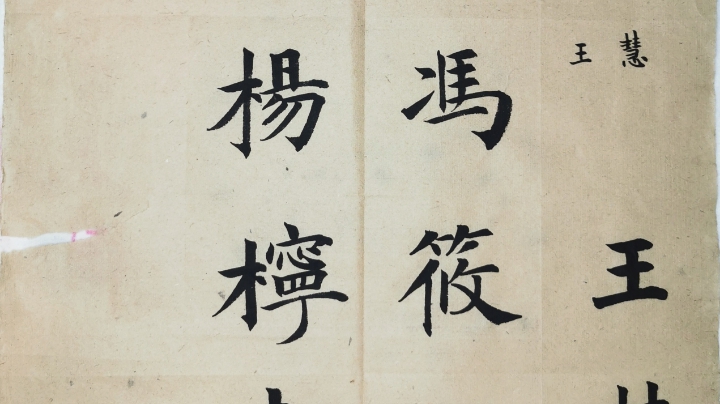 慧
王
王
馮筱
楊檸